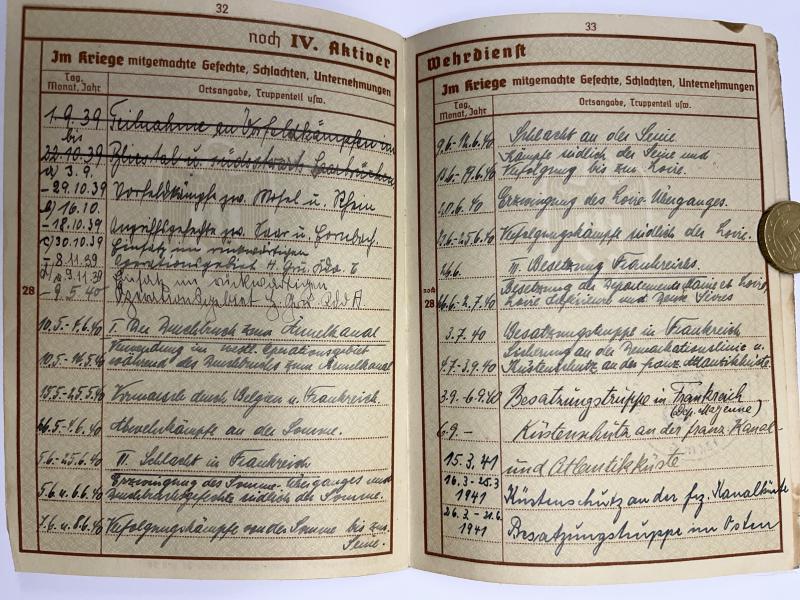 32
noch IV. Aktiver
Im Kriege mitgemachte Gefechte, Schlachten, Unternehmungen
Tag, Monat, Jahr
Ortsangabe, Truppenteil usw.
1.9.39 Teilnahme an Vorfeldkämpfen im
bis
22.10.39 Bliestal u. südostwärts Saarbrücken
a) 3.9.
- 29.10.39 Vorfeldkämpfe zw. Mosel u. Rhein
b) 16.10.
- 18.10.39 Angriffsgefechte zw. Saar u. Hornbach
c) 30.10.39 Einsatz im rückwärtigen
- 8.11.39 Operationsgebiet H. Gru. Kdo. C
9.11.39 Einsatz im rückwärtigen
- 9.5.40 Operationsgebiet H. Gr. Kdo A
28
10.5.- 4.6.40 I. Der Durchbruch zum Ärmelkanal
Verwendung im westl. Operationsgebiet
10.5.-14.5.40 während des Durchbruches zum Ärmelkanal
15.5.-25.5.40 Vormarsch durch Belgien u. Frankreich.
26.5.-4.6.40 Abwehrkämpfe an der Somme.
5.6.-25.6.40 II. Schlacht in Frankreich
Erzwingung des Somme-Überganges und
5.6. u. 6.6.40 Durchbruchsgefechte südlich der Somme.
u. 8.6.40 Verfolgungskämpfe von der Somme bis zur
Seine.
33
Wehrdienst
Im Kriege mitgemachte Gefechte, Schlachten, Unternehmungen
Tag, Monat, Jahr
Ortsangabe, Truppenteil usw.
9.6.-12.6.40 Schlacht an der Seine
Kämpfe südlich der Seine und
13.6.-19.6.40 Verfolgung bis zur Loire.
20.6.40 Erzwingung des Loire-Überganges.
21.6.-25.6.40 Verfolgungskämpfe südlich der Loire.
III. Besetzung Frankreichs
Besetzung der Departements Maine et Loire,
noch 28
26.6.-2.7.40 Loire Inferieure und Deux Sèvres
3.7.40 Besatzungstruppe in Frankreich
Sicherung an der Demarkationslinie u.
4.7.-3.9.40 Küstenschutz an der franz. Atlantikküste.
3.9.-6.9.40 Besatzungstruppe in Frankreich
(Dep. Mayenne)
6.9.- Küstenschutz an der franz. Kanal-
15.3.41 und Atlantikküste
16.3.-25.3
1941 Küstenschutz an der frz. Kanalküste
26.3.-21.6.
1941 Besatzungstruppe im Osten